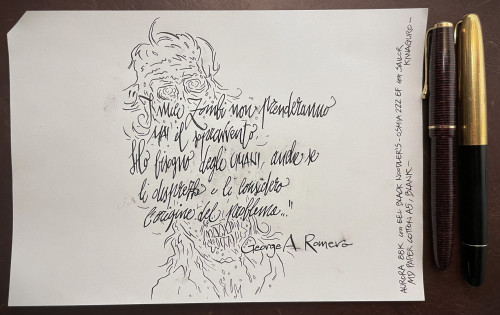 "I miei zombi non prenderanno
mai il sopravvento.
Ho bisogno degli UMANI, anche se
li disprezzo e li considero
l'origine del problema..."
George A. Romero
AURORA 88K con EEL BLACK NOODLER'S - OSMIA 222 EF SAILOR
KIWAGURO -
MD PAPER COTTON A5, BLANK -